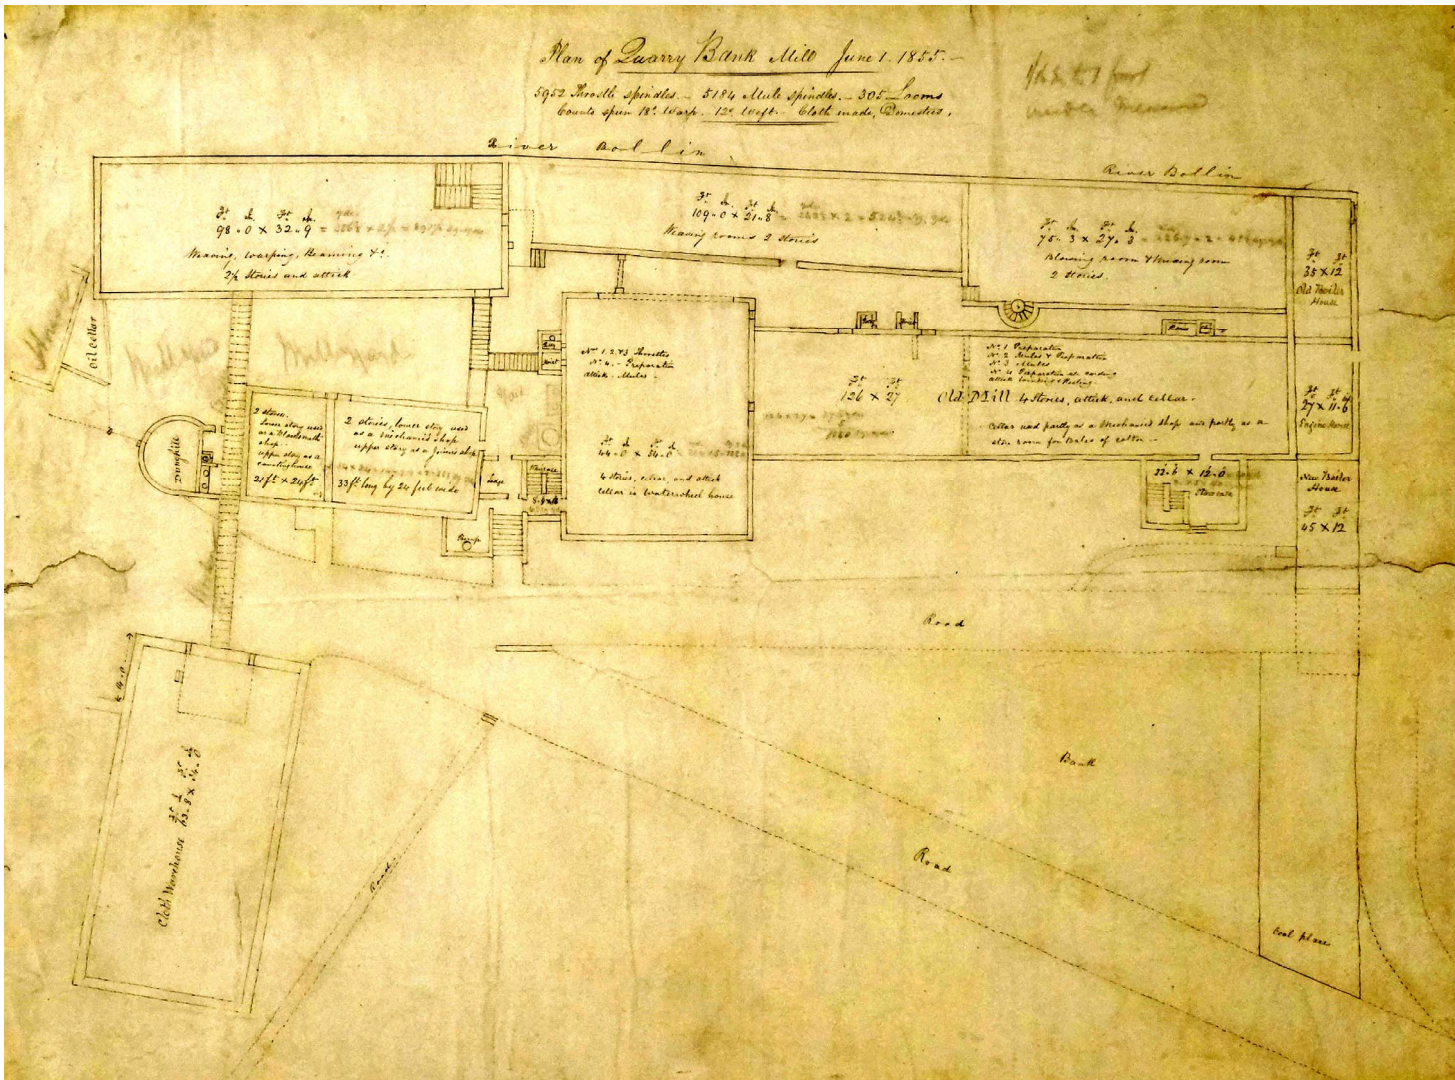 Plan of Quarry Bank Mill June 1. 1855.
5952 Throstle spindles. 5184 Mule spindles. 305 Looms
Counts spun 18s. Warp. 12s. Weft. Cloth made, Domestics.
River Bollin
River Bollin
Ft. In. Ft. In.
98-0 × 32-9
Weaving, warping, Beaming &c.
2½ Stories and attick
Ft. In. Ft. In.
109-0 × 21-8
Weaving rooms 2 stories
Ft. In. Ft. In.
75-3 × 27-3
Blowing room & Mixing room
2 stories.
Ft. Ft.
35 × 12
Old Boiler
House
Oil Cellar
Nos. 1. 2 & 3 Throstles
No. 4. - Preparation
attick - Mules -
Ft. In. Ft. In.
44-0 × 54-0
4 stories, cellar, and attick
Cellar is Waterwheel house
No. 1 Preparation
No. 2 Mules & Preparation
No. 3 Mules
Ft. Ft.
126 × 27
Old Mill 4 Stories, attick, and cellar.
Cellar used partly as a Mechanics shop and partly as a
store room for Bales of cotton
Ft. Ft. In
27 × 11-6
Engine House
Dunghill
2 stories.
Lower story used
as a Blacksmith
shop
upper story as a
countinghouse
21 ft × 24 ft
2 stories, lower story used
as a mechanics shop
upper story as a joiners shop
33 ft long by 24 feet wide
Lodge
Staircase
Pump
22-6 × 12-0
Staircase
New Boiler
House
Ft. Ft.
45 × 12
Road
Cloth Warehouse
Road
Bank
Road
Coal place